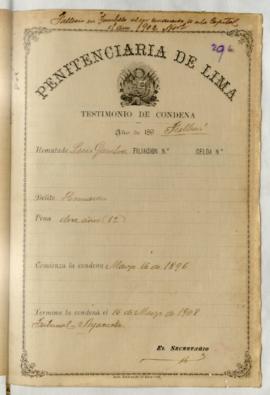 Falleció en
a la Capital
1902
296
PENITENCIARIA DE LIMA
TESTIMONIO DE CONDENA
Año de 189
Falleció
Rematado Luis Gamboa FILIACION N.º CELDA N.º
Delito
Pena doce años (12)
Comienza la condena Marzo 16 de 1896
Termina la condena el 16 de Marzo de 1908
Tribunal Ayacucho
EL SECRETARIO